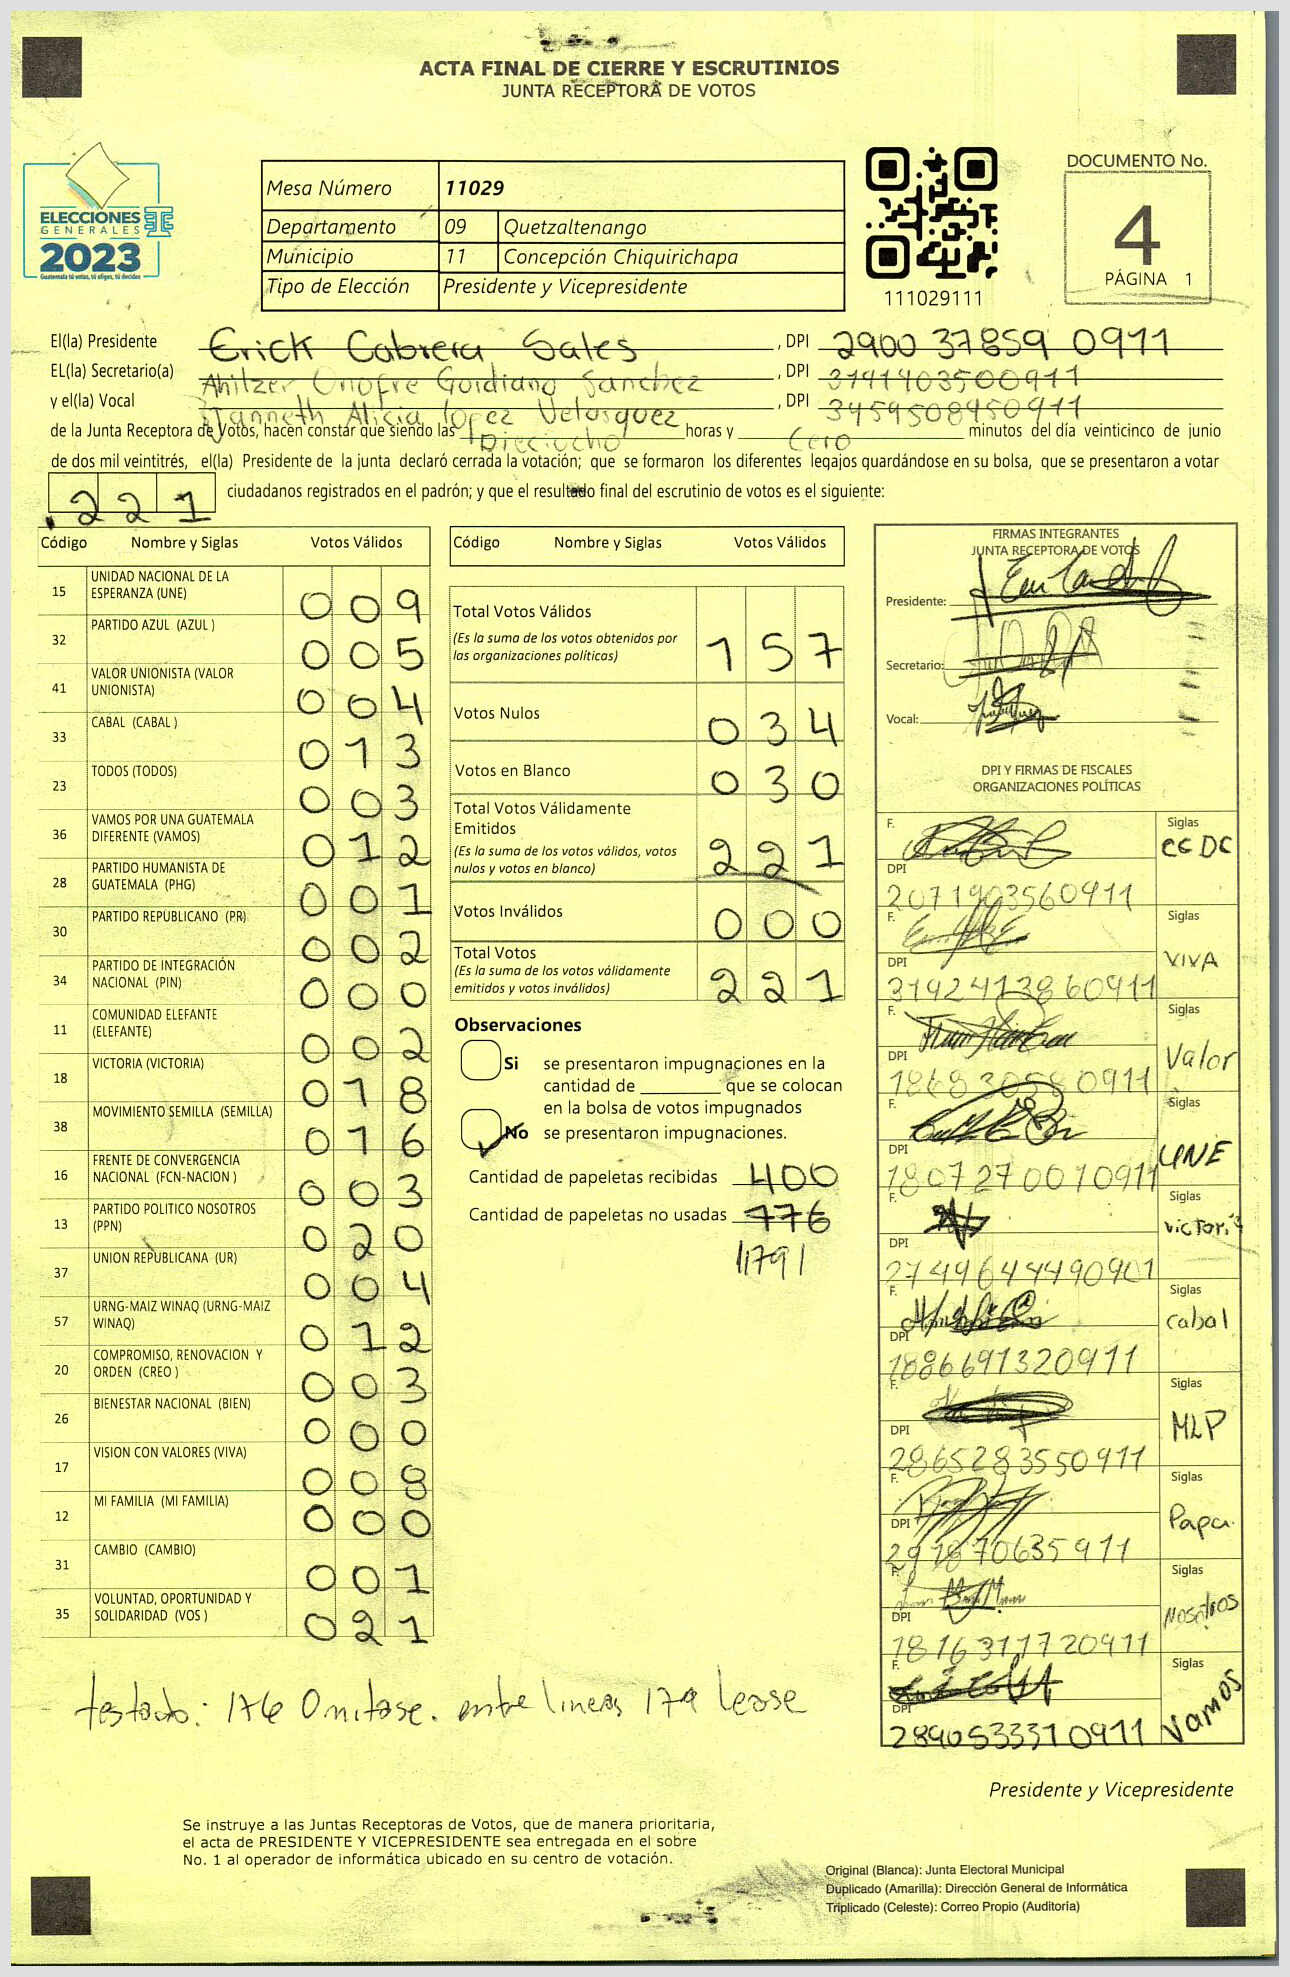 ACTA FINAL DE CIERRE Y ESCRUTINIOS
JUNTA RECEPTORA DE VOTOS
ELECCIONES
GENERALES
2023
Guatemala tú votas, tú eliges, tú decides
Mesa Número 11029
Departamento 09 Quetzaltenango
Municipio 11 Concepción Chiquirichapa
Tipo de Elección Presidente y Vicepresidente
111029111
DOCUMENTO No.
4
PÁGINA 1
El(la) Presidente Erick Cabrera Sales , DPI 2900 37859 0911
EL(la) Secretario(a) Ahitzer Onofre Goidiano Sanchez , DPI 3141403500911
y el(la) Vocal Janneth Alicia lopez Velasquez , DPI 3459508450911
de la Junta Receptora de Votos, hacen constar que siendo las Dieciocho horas y Cero minutos del día veinticinco de junio
de dos mil veintitrés, el(la) Presidente de la junta declaró cerrada la votación; que se formaron los diferentes legajos quardándose en su bolsa, que se presentaron a votar
221 ciudadanos registrados en el padrón; y que el resultado final del escrutinio de votos es el siguiente:
Código Nombre y Siglas Votos Válidos
15 UNIDAD NACIONAL DE LA ESPERANZA (UNE) 009
32 PARTIDO AZUL (AZUL ) 005
41 VALOR UNIONISTA (VALOR UNIONISTA) 004
33 CABAL (CABAL ) 013
23 TODOS (TODOS) 003
36 VAMOS POR UNA GUATEMALA DIFERENTE (VAMOS) 012
28 PARTIDO HUMANISTA DE GUATEMALA (PHG) 001
30 PARTIDO REPUBLICANO (PR) 002
34 PARTIDO DE INTEGRACIÓN NACIONAL (PIN) 000
11 COMUNIDAD ELEFANTE (ELEFANTE) 002
18 VICTORIA (VICTORIA) 018
38 MOVIMIENTO SEMILLA (SEMILLA) 016
16 FRENTE DE CONVERGENCIA NACIONAL (FCN-NACION ) 003
13 PARTIDO POLITICO NOSOTROS (PPN) 020
37 UNION REPUBLICANA (UR) 004
57 URNG-MAIZ WINAQ (URNG-MAIZ WINAQ) 012
20 COMPROMISO, RENOVACION Y ORDEN (CREO ) 003
26 BIENESTAR NACIONAL (BIEN) 000
17 VISION CON VALORES (VIVA) 008
12 MI FAMILIA (MI FAMILIA) 000
31 CAMBIO (CAMBIO) 001
35 VOLUNTAD, OPORTUNIDAD Y SOLIDARIDAD (VOS ) 021
Código Nombre y Siglas Votos Válidos
Total Votos Válidos 157
(Es la suma de los votos obtenidos por
las organizaciones políticas)
Votos Nulos 034
Votos en Blanco 030
Total Votos Válidamente
Emitidos 221
(Es la suma de los votos válidos, votos
nulos y votos en blanco)
Votos Inválidos 000
Total Votos 221
(Es la suma de los votos válidamente
emitidos y votos inválidos)
Observaciones
Si se presentaron impugnaciones en la
cantidad de ________ que se colocan
en la bolsa de votos impugnados
No se presentaron impugnaciones.
Cantidad de papeletas recibidas 400
Cantidad de papeletas no usadas 176
//179/
FIRMAS INTEGRANTES
JUNTA RECEPTORA DE VOTOS
Presidente:
Secretario:
Vocal:
DPI Y FIRMAS DE FISCALES
ORGANIZACIONES POLÍTICAS
F. Siglas CC DC
DPI 2071903560911
F. Siglas VIVA
DPI 3192413860911
F. Siglas Valor
DPI 1868305580911
F. Siglas UNE
DPI 1807270010911
F. Siglas Victoria
DPI 2749644490901
F. Siglas Cabal
DPI 1886691320911
F. Siglas MLP
DPI 2865283550911
F. Siglas Papa.
DPI 291870635911
F. Siglas Nosotros
DPI 1816311720911
F. Siglas Vamos
DPI 2890533310911
testado: 176 Omitase. entre lineas 179 lease
Presidente y Vicepresidente
Se instruye a las Juntas Receptoras de Votos, que de manera prioritaria,
el acta de PRESIDENTE Y VICEPRESIDENTE sea entregada en el sobre
No. 1 al operador de informática ubicado en su centro de votación.
Original (Blanca): Junta Electoral Municipal
Duplicado (Amarilla): Dirección General de Informática
Triplicado (Celeste): Correo Propio (Auditoría)